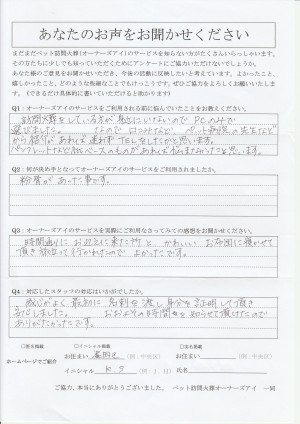 あなたのお声をお聞かせください
まだまだペット訪問火葬(オーナーズアイ)のサービスを知らない方がたくさんいらっしゃいます。
その方たちに少しでも知っていただくためにアンケートにご協力いただけないでしょうか。
あなた様のご意見をお聞かせいただき、今後の活動に反映したいと考えています。よかったこと、
嬉しかったこと、どのような些細なことでもけっこうです。ぜひご協力をよろしくお願いいたしま
す。(できるだけ具体的に書いていただけると助かります)
Q1:オーナーズアイのサービスをご利用される前に悩んでいたことをお教えください。
訪問火葬をしている方が身近にいないので PCのみで
選びました。 なので 口コミなど、ペット病院の先生など
から紹介があれば迷わず TELをしたかと思います。
パンフレットなど紙ベースのものがあれば悩まなかったと思います。
Q2:何が決め手となってオーナーズアイのサービスをご利用されましたか。
粉骨があった事です。
Q3:オーナーズアイのサービスを実際にご利用なさってみての感想をお聞かせください。
時間通りにお迎えに来た所と かわいい お布団に寝かせて
頂き旅立って行かれたので よかったです。
Q4:対応したスタッフの対応はいかがでしたか。
感じがよく 最初に 名刺を渡し身分を証明して頂き
おおよその時間をお知らせて頂けたので
ありがたかったです。
□匿名掲載 □イニシャル掲載 □実名掲載
ホームページでご紹介 お住まい (例:中央区) お住まい (例:中央区)
イニシャル K.S (例:J.H) 氏名
ご協力、本当にありがとうございました。 ペット訪問火葬オーナーズアイ 一同